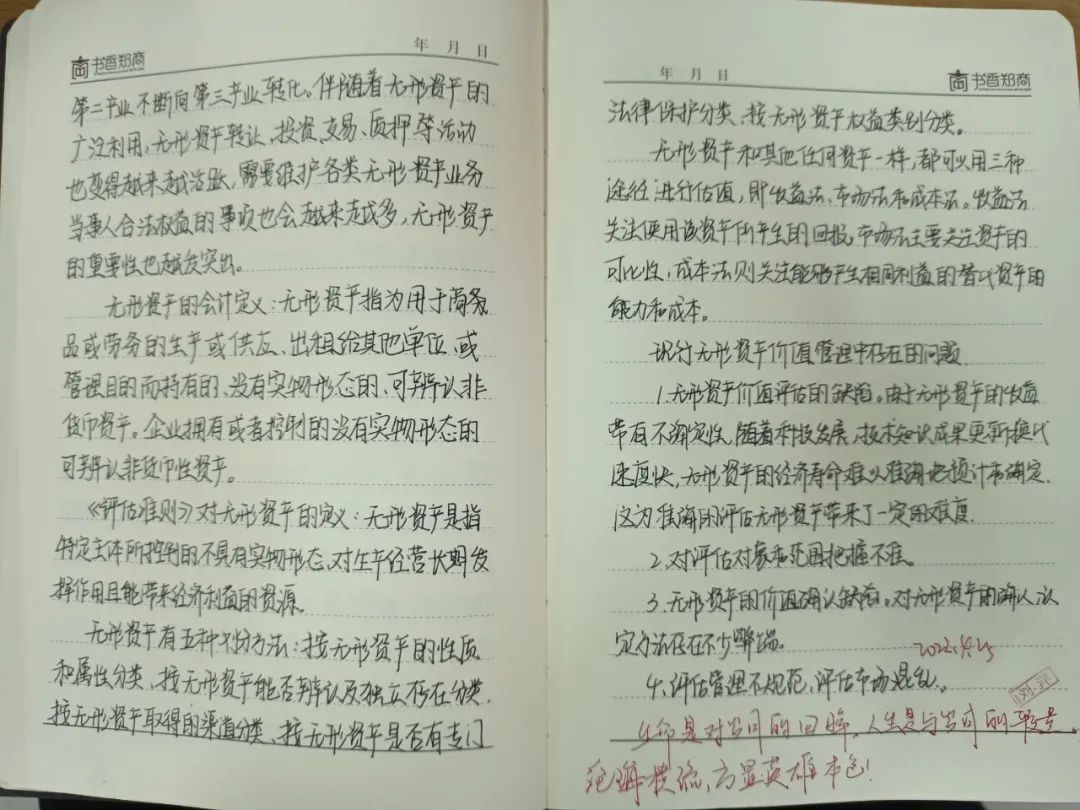 书香郑商
年 月 日
第二产业不断向第三产业转化。伴随着无形资产的
广泛利用,无形资产转让、投资、交易、质押等活动
也变得越来越活跃,需要维护各类无形资产业务
当事人合法权益的事项也会越来越多,无形资产
的重要性也越发突出。
无形资产的会计定义:无形资产指为用于商务
品或劳务的生产或供应、出租给其他单位、或
管理目的而持有的、没有实物形态的、可辨认非
货币资产。企业拥有或者控制的没有实物形态的
可辨认非货币性资产。
《评估准则》对无形资产的定义:无形资产是指
特定主体所控制的不具有实物形态、对生产经营长期发
挥作用且能带来经济利益的资源。
无形资产有五种划分方法:按无形资产的性质
和属性分类、按无形资产能否辨认及独立存在分类、
按无形资产取得的渠道分类、按无形资产是否有专门
年 月 日
书香郑商
法律保护分类、按无形资产权益类别分类。
无形资产和其他任何资产一样,都可以用三种
途径进行估值,即收益法、市场法和成本法。收益法
关注使用该资产所产生的回报,市场法主要关注资产的
可比性,成本法则关注能够产生相同利益的替代资产的
能力和成本。
现行无形资产价值管理中存在的问题
1.无形资产价值评估的缺陷。由于无形资产的收益
带有不确定性,随着科技发展,技术知识成果更新换代
速度快,无形资产的经济寿命难以准确地预计和确定.
这为准确的评估无形资产带来了一定的难度.
2.对评估对象和范围把握不准。
3.无形资产的价值确认缺陷。对无形资产的确认、认
定方法存在不少弊端。
2022.4.25
4.评估管理不规范,评估市场混乱。
生命是对岁月的回眸,人生是与岁月的
沧海横流,方显英雄本色!